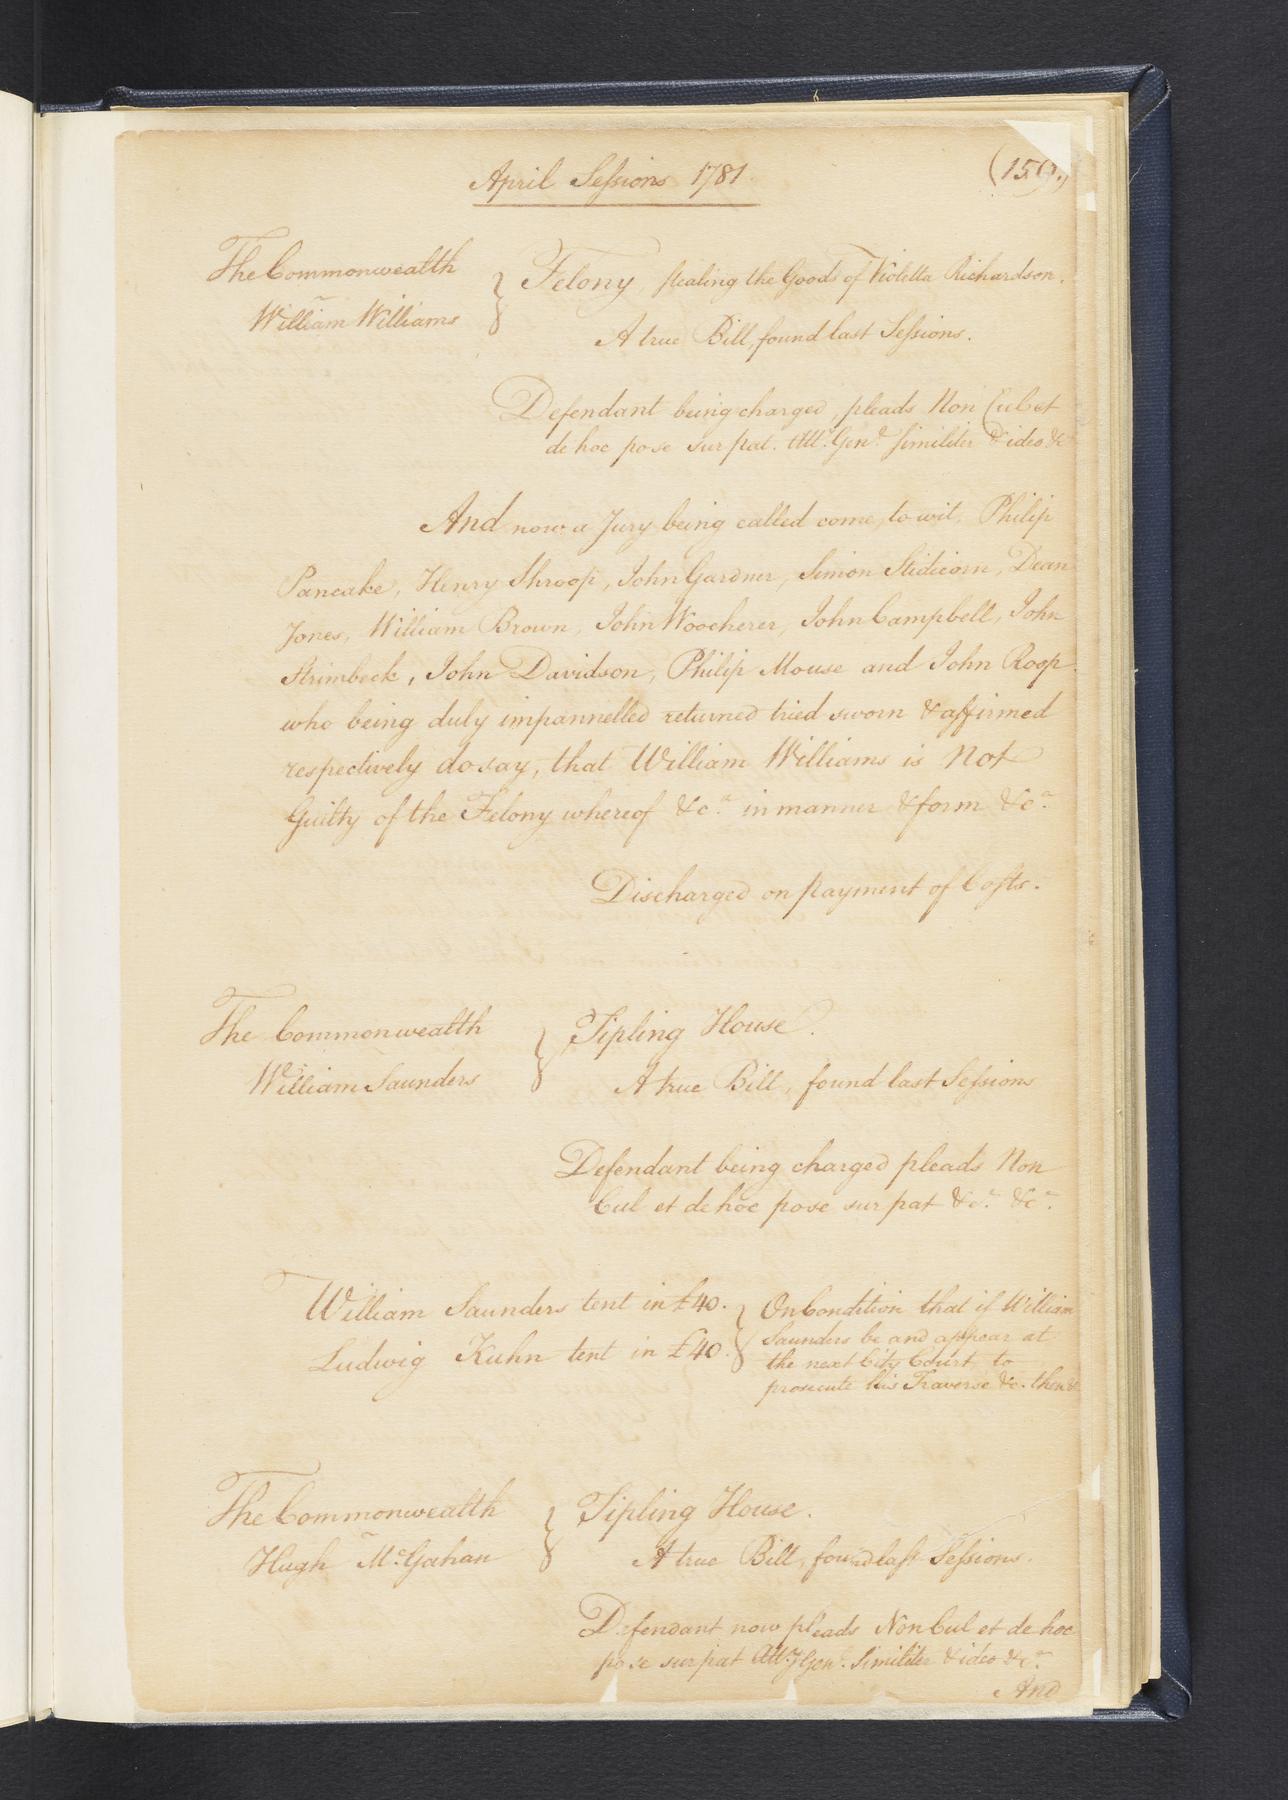 April Sessions 1781.
(159.)
The Commonwealth
v
William Williams
Felony, stealing the Goods of Violetta Richardson.
A true Bill, found last Sessions.
Defendant being charged, pleads Non Cul et
de hoc pose sur pat. Att.y Gen.l similiter & ideo &c
And now a Jury being called come, to wit, Philip
Pancake, Henry Shroop, John Gardner, Simon Stidicorn, Dean
Jones, William Brown, John Woocherer, John Campbell, John
Strimbeck, John Davidson, Philip Mouse and John Roop
who being duly impannelled returned tried sworn & affirmed
respectively do say, that William Williams is Not
Guilty of the Felony whereof &c.a in manner & form &c.a
Discharged on payment of Costs.
The Commonwealth
v
William Saunders
Tipling House.
A true Bill, found last Sessions
Defendant being charged pleads Non
Cul et de hoc pose sur pat &c.a &c.a
William Saunders tent in £40.
Ludwig Kuhn tent in £40.
On Condition that if William
Saunders be and appear at
the next City Court to
prosecute his Traverse &c. then &
The Commonwealth
v
Hugh McGahan
Tipling House.
A true Bill, found last Sessions.
Defendant now pleads Non Cul et de hoc
pose sur pat Att.y Gen.l Similiter & ideo &c.a
And